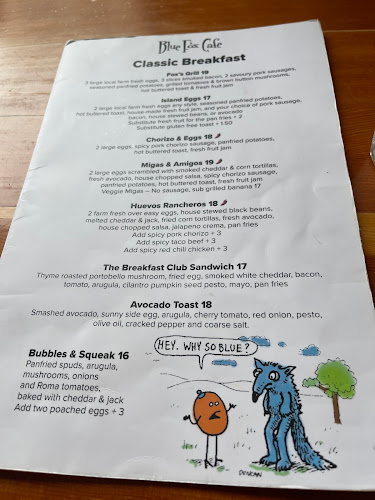 Blue Fox Cafe
Classic Breakfast
Fox's Grill 19
2 large local farm fresh eggs, 3 slices smoked bacon, 2 savoury pork sausages,
seasoned panfried potatoes, grilled tomatoes & brown button mushrooms,
hot buttered toast & fresh fruit jam
Island Eggs 17
2 large local farm fresh eggs any style, seasoned panfried potatoes,
hot buttered toast, house made fresh fruit jam, and your choice of pork sausage,
bacon, house stewed beans, or avocado
Substitute fresh fruit for the pan fries + 2
Substitute gluten free toast + 1.50
Chorizo & Eggs 18
2 large eggs, spicy pork chorizo sausage, panfried potatoes,
hot buttered toast, fresh fruit jam
Migas & Amigos 19
2 large eggs scrambled with smoked cheddar & corn tortillas,
fresh avocado, house chopped salsa, spicy chorizo sausage,
panfried potatoes, hot buttered toast, fresh fruit jam
Veggie Migas – No sausage, sub grilled banana 17
Huevos Rancheros 18
2 farm fresh over easy eggs, house stewed black beans,
melted cheddar & jack, fried corn tortillas, fresh avocado,
house chopped salsa, jalapeno crema, pan fries
Add spicy pork chorizo + 3
Add spicy taco beef + 3
Add spicy red chili chicken + 3
The Breakfast Club Sandwich 17
Thyme roasted portobello mushroom, fried egg, smoked white cheddar, bacon,
tomato, arugula, cilantro pumpkin seed pesto, mayo, pan fries
Avocado Toast 18
Smashed avocado, sunny side egg, arugula, cherry tomato, red onion, pesto,
olive oil, cracked pepper and coarse salt.
Bubbles & Squeak 16
Panfried spuds, arugula,
mushrooms, onions
and Roma tomatoes,
baked with cheddar & jack
Add two poached eggs + 3
HEY. WHY SO BLUE?